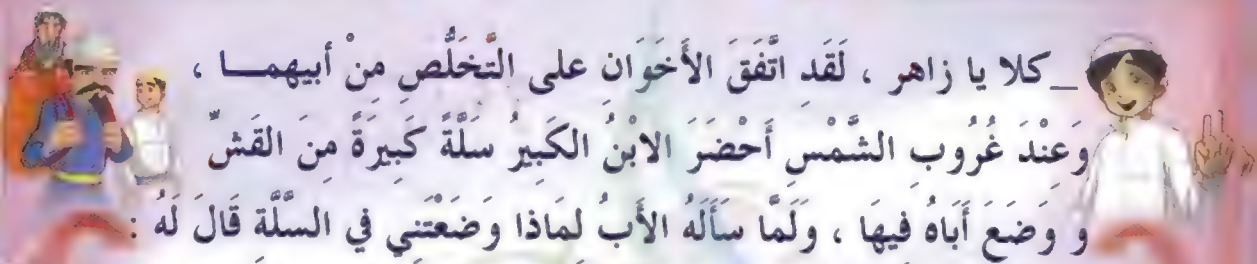 _ كلا يا زاهر ، لَقَد اتَّفَقَ الأَخَوَانِ على التَّخَلُّصِ مِنْ أبيهمــا ،
وَعِنْدَ غُرُوبِ الشَّمْسِ أَحْضَرَ الابْنُ الكَبِيرُ سَلَّةً كَبِيرَةً مِنَ القَشِّ
و وَضَعَ أَبَاهُ فِيهَا ، وَلَمَّا سَأَلَهُ الأَبُ لِمَاذا وَضَعْتَنِي في السَّلَّةِ قَالَ لَهُ :